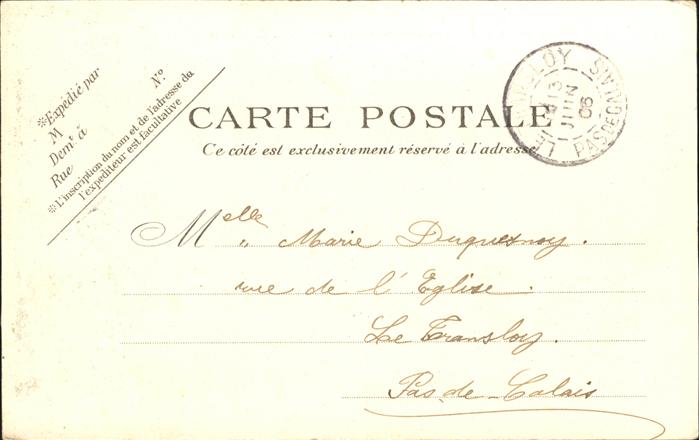 ※Expédié par
M
Demt à
Rue
N.º
※L'inscription du nom et de l'adresse du
l'expéditeur est facultative
CARTE POSTALE
Ce côté est exclusivement réservé à l'adresse
LE TRANSLOY
PAS DE CALAIS
13
JUIN
06
Melle „ Marie Duquesnoy.
rue de l'Eglise.
Le Transloy.
Pas-de-Calais